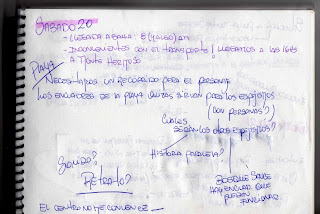 SABADO 20
- LLEGADA A BAHIA
- INCONVENIENTES CON EL TRANSPORTE! LLEGAMOS A LAS 16HS
A MONTE HERMOSO
PLAYA
NECESITAMOS UN RECORRIDO PARA EL PERSONAJE
LOS ENCUADRES DE LA PLAYA QUIZAS SIRVAN PARA LOS ESPEJITOS
(CON PERSONAS?)
CUALES
SERIAN LOS OTROS ESPEJITOS?
HISTORIA PARALELA?
SONIDO?
RETRATO?
BOSQUE SAUCE
HAY ENCUADRES QUE
PUEDEN
FUNCIONAR
EL CENTRO NO ME CONVENCE